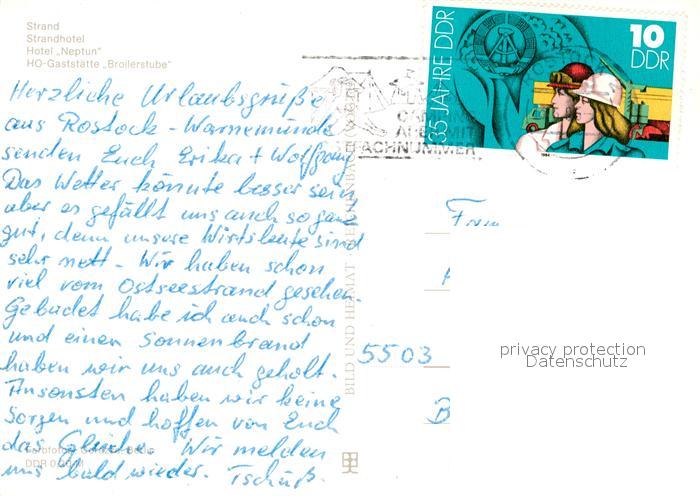 Strand
Strandhotel
Hotel „Neptun"
HO-Gaststätte „Broilerstube"
Herzliche Urlaubsgrüße
aus Rostock-Warnemünde
senden Euch Erika + Wolfgang
Das Wetter könnte besser sein
aber es gefällt uns auch so ganz
gut, denn unsere Wirtsleute sind
sehr nett. Wir haben schon
viel vom Ostseestrand gesehen.
Gebadet habe ich auch schon
und einen Sonnenbrand
haben wir uns auch geholt.
Ansonsten haben wir keine
Sorgen und hoffen von Euch
das Gleiche. Wir melden
uns bald wieder. Tschüß.
DDR
BILD UND HEIMAT
35 JAHRE DDR
10
DDR
1984
ACHNUMMER
5503
B
privacy protection
Datenschutz